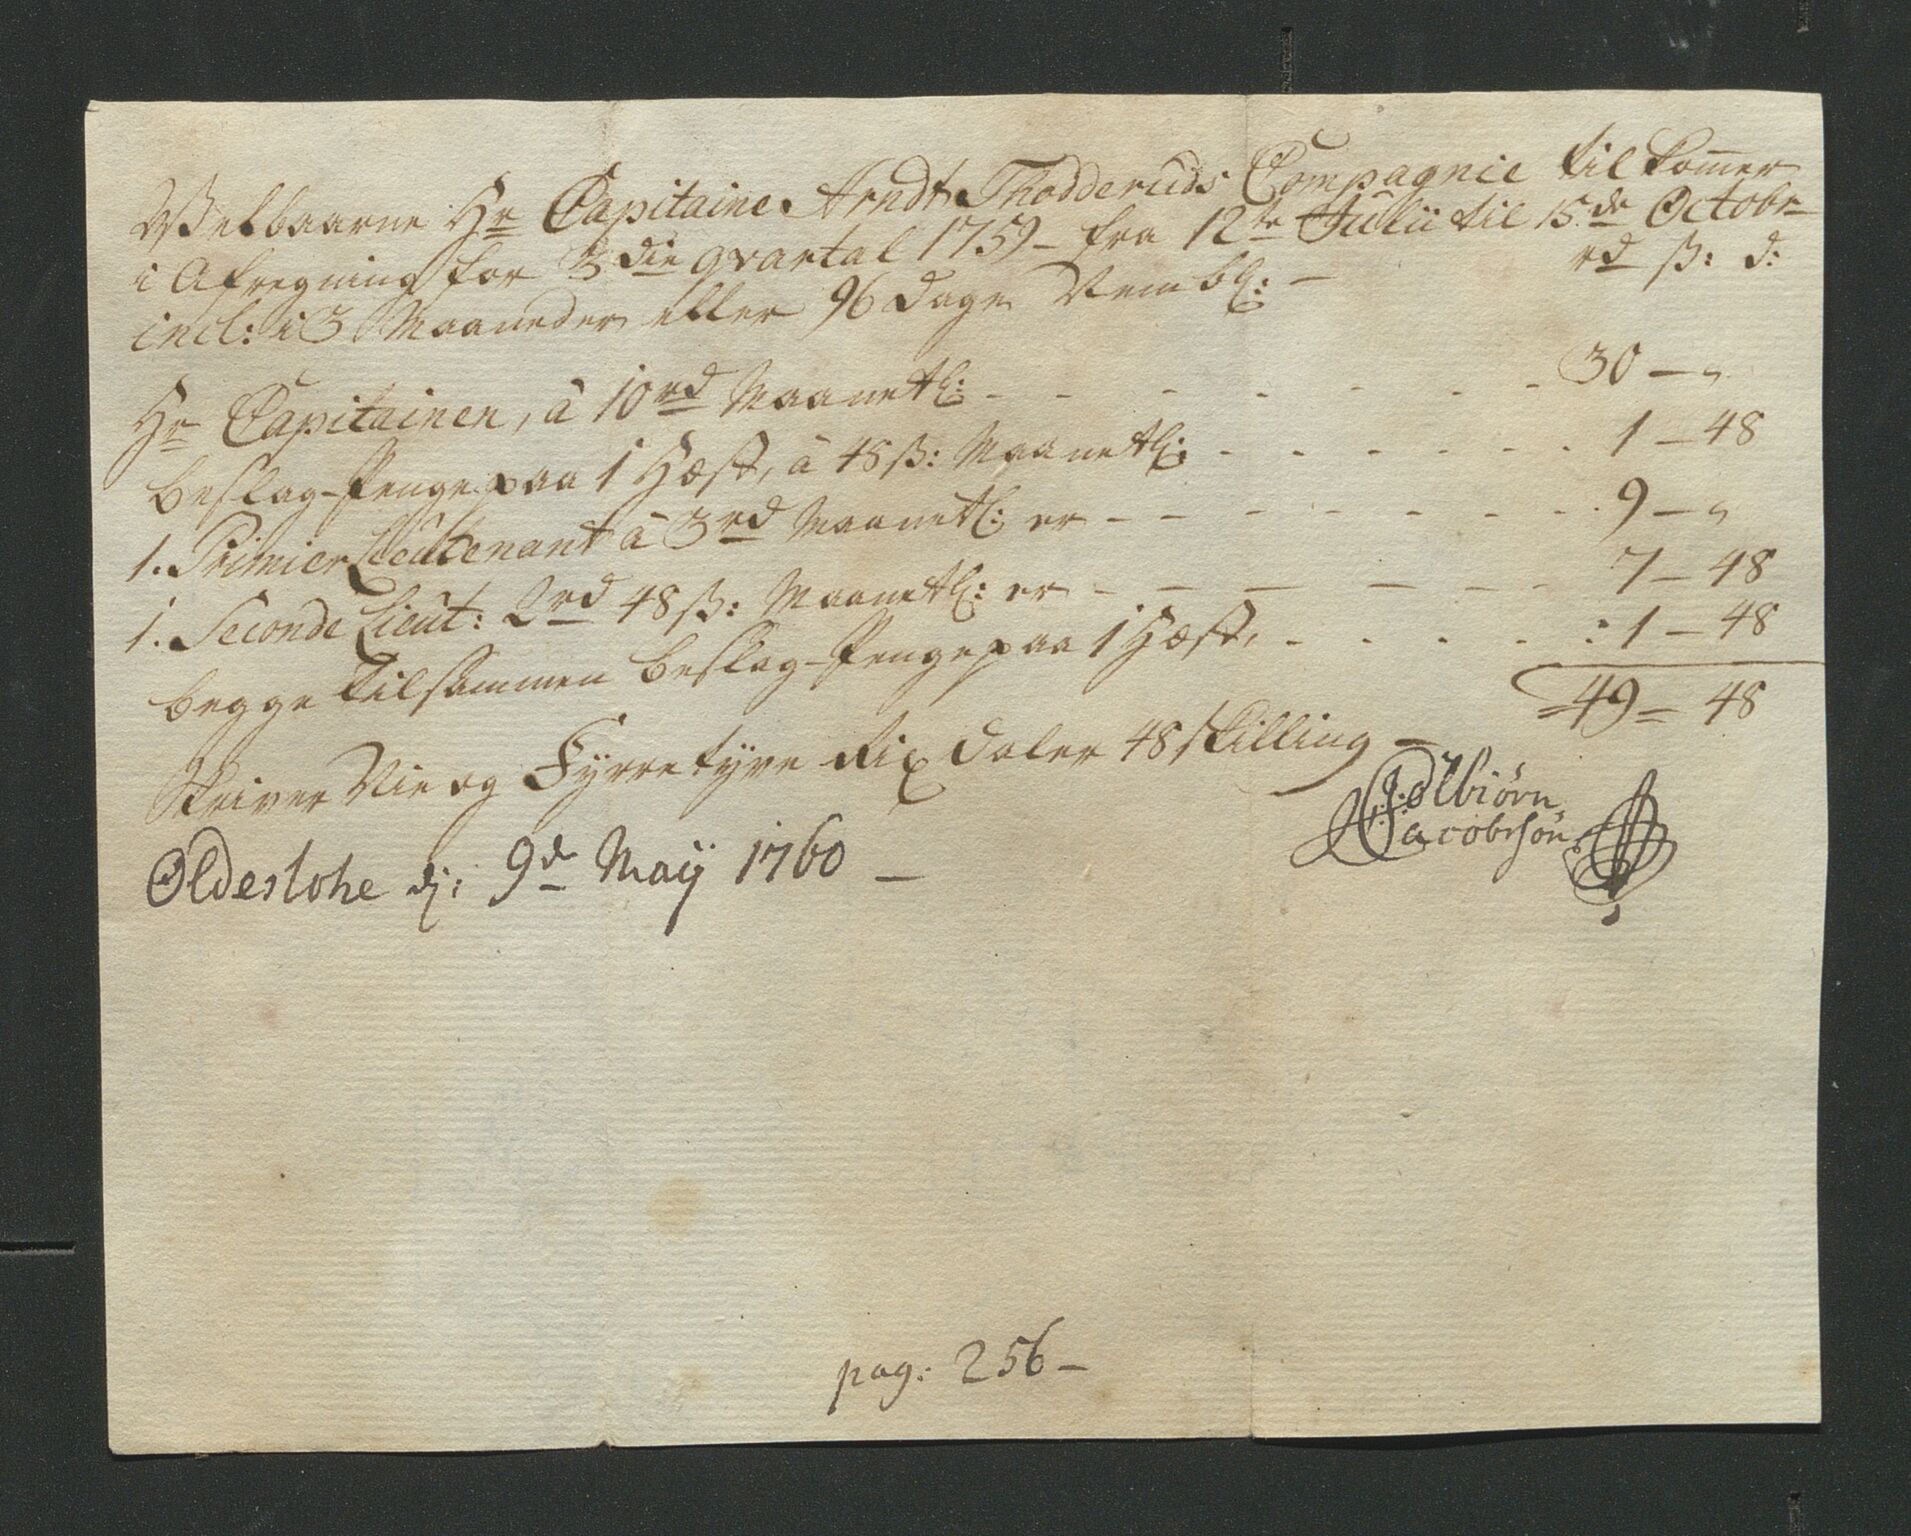 Welbaarne Hr Capitaine Arndt Thodderuds Compagnie tilkommer
i Afregning for 3die qvartal 1759 – fra 12te Julii til 15de Octobr
incl: i 3 Maaneder eller 96 dage
rd ß: d:
Hr Capitainen, à 10 rd Maanetl: – – – – – – – 30 – „
Beslag-Penge paa 1 Hæst, à 48 ß: Maanetl: – – – – – 1 – 48
1. Primier Lieutenant à 3 rd Maanetl: er – – – – – – 9 – „
1. Seconde Lieut: 2 rd 48 ß: Maanetl: er – – – – – – 7 – 48
begge tilsammen Beslag-Penge paa 1 Hæst, – – – – – : 1 – 48
49 = 48
Skriver Nie og Fyrretyve Rix daler 48 skilling –
Colbiörn
Jacobsön
Oldeslohe dj: 9d Maij 1760 –
pag: 256 –